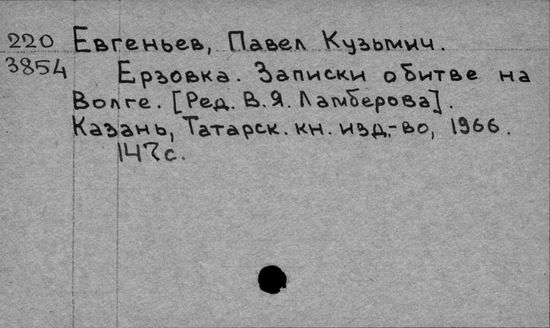 220 Евгеньев, Павел Кузьмич.
3854 Ерзовка. Записки о битве на
Волге. [Ред. В.Я. Ламберова].
Казань, Татарск. кн. изд-во, 1966.
147с.